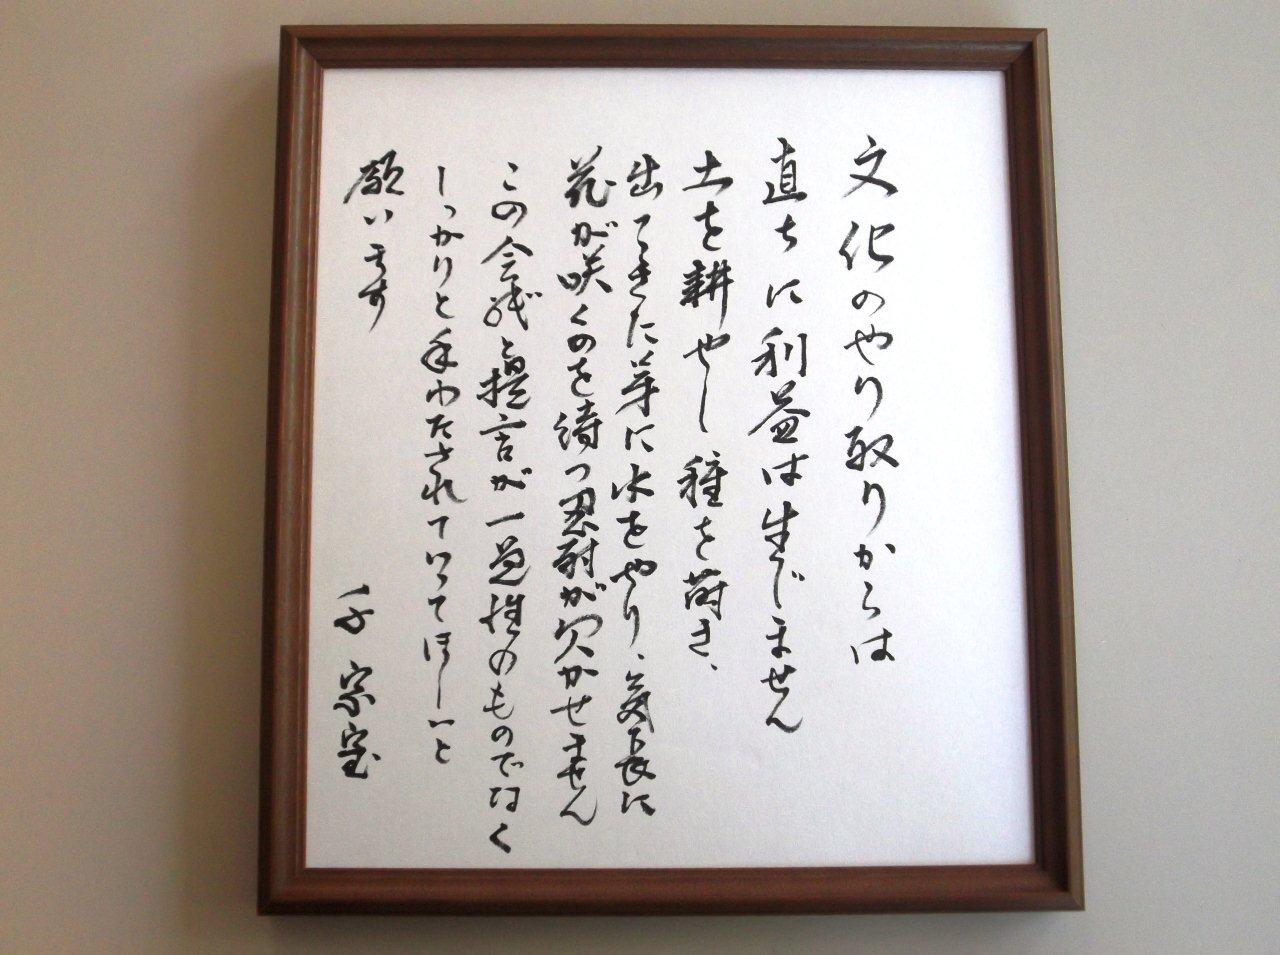 文化のやり取りからは
直ちに利益は生じません
土を耕やし種を蒔き、
出てきた芽に水をやり、気長に
花が咲くのを待つ忍耐が欠かせません
この会議と提言が一過性のものでなく
しっかりと手わたされていってほしいと
願います
千宗室